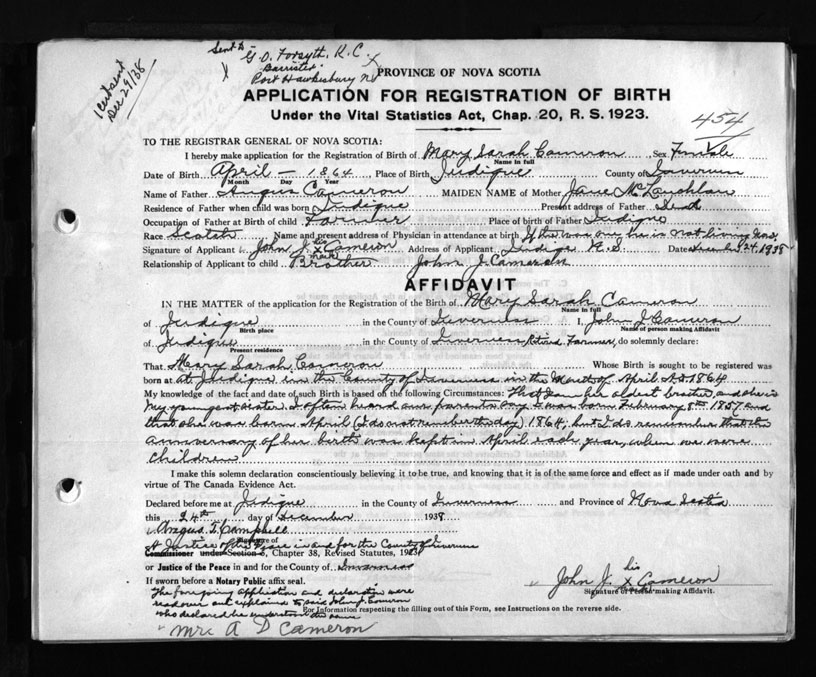 Sent to G D. Forsyth, K.C.
Barrister
Port Hawkesbury N
1 cert sent
Dec 29/38
PROVINCE OF NOVA SCOTIA
APPLICATION FOR REGISTRATION OF BIRTH
Under the Vital Statistics Act, Chap. 20, R. S. 1923.
454
TO THE REGISTRAR GENERAL OF NOVA SCOTIA:
I hereby make application for the Registration of Birth of Mary Sarah Cameron Sex Female
Name in full
Date of Birth April — 1864 Place of Birth Judique County of Inverness
Month Day Year
Name of Father Angus Cameron MAIDEN NAME of Mother Jane McLauchlan
Residence of Father when child was born Judique Present address of Father Dead
Occupation of Father at Birth of child Farmer Place of birth of Father Judique
Race Scotch Name and present address of Physician in attendance at birth If there was one he is not living now
Signature of Applicant John J. his x mark Cameron Address of Applicant Judique N.S. Date December 24. 1938
Relationship of Applicant to child Brother John J. Cameron
AFFIDAVIT
IN THE MATTER of the application for the Registration of the Birth of Mary Sarah Cameron
Name in full
of Judique in the County of Inverness I, John J Cameron
Birth place Name of person making Affidavit
of Judique in the County of Inverness Retired Farmer, do solemnly declare:
Present residence
That Mary Sarah Cameron Whose Birth is sought to be registered was
born at at Judique in the County of Inverness in the Month of April A.D. 1864
My knowledge of the fact and date of such Birth is based on the following Circumstances: That I am her oldest brother, and she is
my youngest sister. I often heard our parents say I was born February 8th 1857 and
that she was born April (I do not remember the day) 1864, but I do remember that the
anniversary of her birth was kept in April each year, when we were
children
I make this solemn declaration conscientiously believing it to be true, and knowing that it is of the same force and effect as if made under oath and by
virtue of The Canada Evidence Act.
Declared before me at Judique in the County of Inverness and Province of Nova Scotia
this 24th day of December 1938
Angus D. Campbell
Signature of
A Justice of the Peace in and for the County of Inverness
Commissioner under Section 8, Chapter 38, Revised Statutes, 1923
or Justice of the Peace in and for the County of Inverness
If sworn before a Notary Public affix seal.
John J. his x Cameron
Signature of Person making Affidavit.
The foregoing application and declaration were
read over and explained to said John J. Cameron
who declared he understood the same
For Information respecting the filling out of this Form, see Instructions on the reverse side.
Mrs A D Cameron